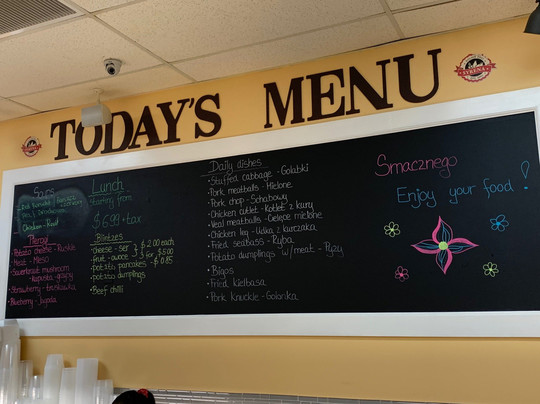 TODAY'S MENU
SYRENA
Soups
Chicken - Rosół
Pierogi
Potato Cheese - Ruskie
Meat - Mięso
Sauerkraut mushroom
Strawberry - truskawka
Blueberry - Jagoda
Lunch
Starting from
$6.99 + tax
Blintzes
cheese - ser } $2.00 each
fruit - owoce } 3 for $5.00
potato pancakes - $0.85
potato dumplings
Beef chilli
Daily dishes
• Stuffed cabbage - Gołąbki
• Pork meatballs - Mielone
• Pork chop - Schabowy
• Chicken cutlet - Kotlet z kury
• Veal meatballs - Cielęce mielone
• Chicken leg - Udka z kurczaka
• Fried seabass - Ryba
• Potato dumplings w/meat - Pyzy
• Bigos
• Fried kielbasa
• Pork knuckle - Golonka
Smacznego
Enjoy your food !